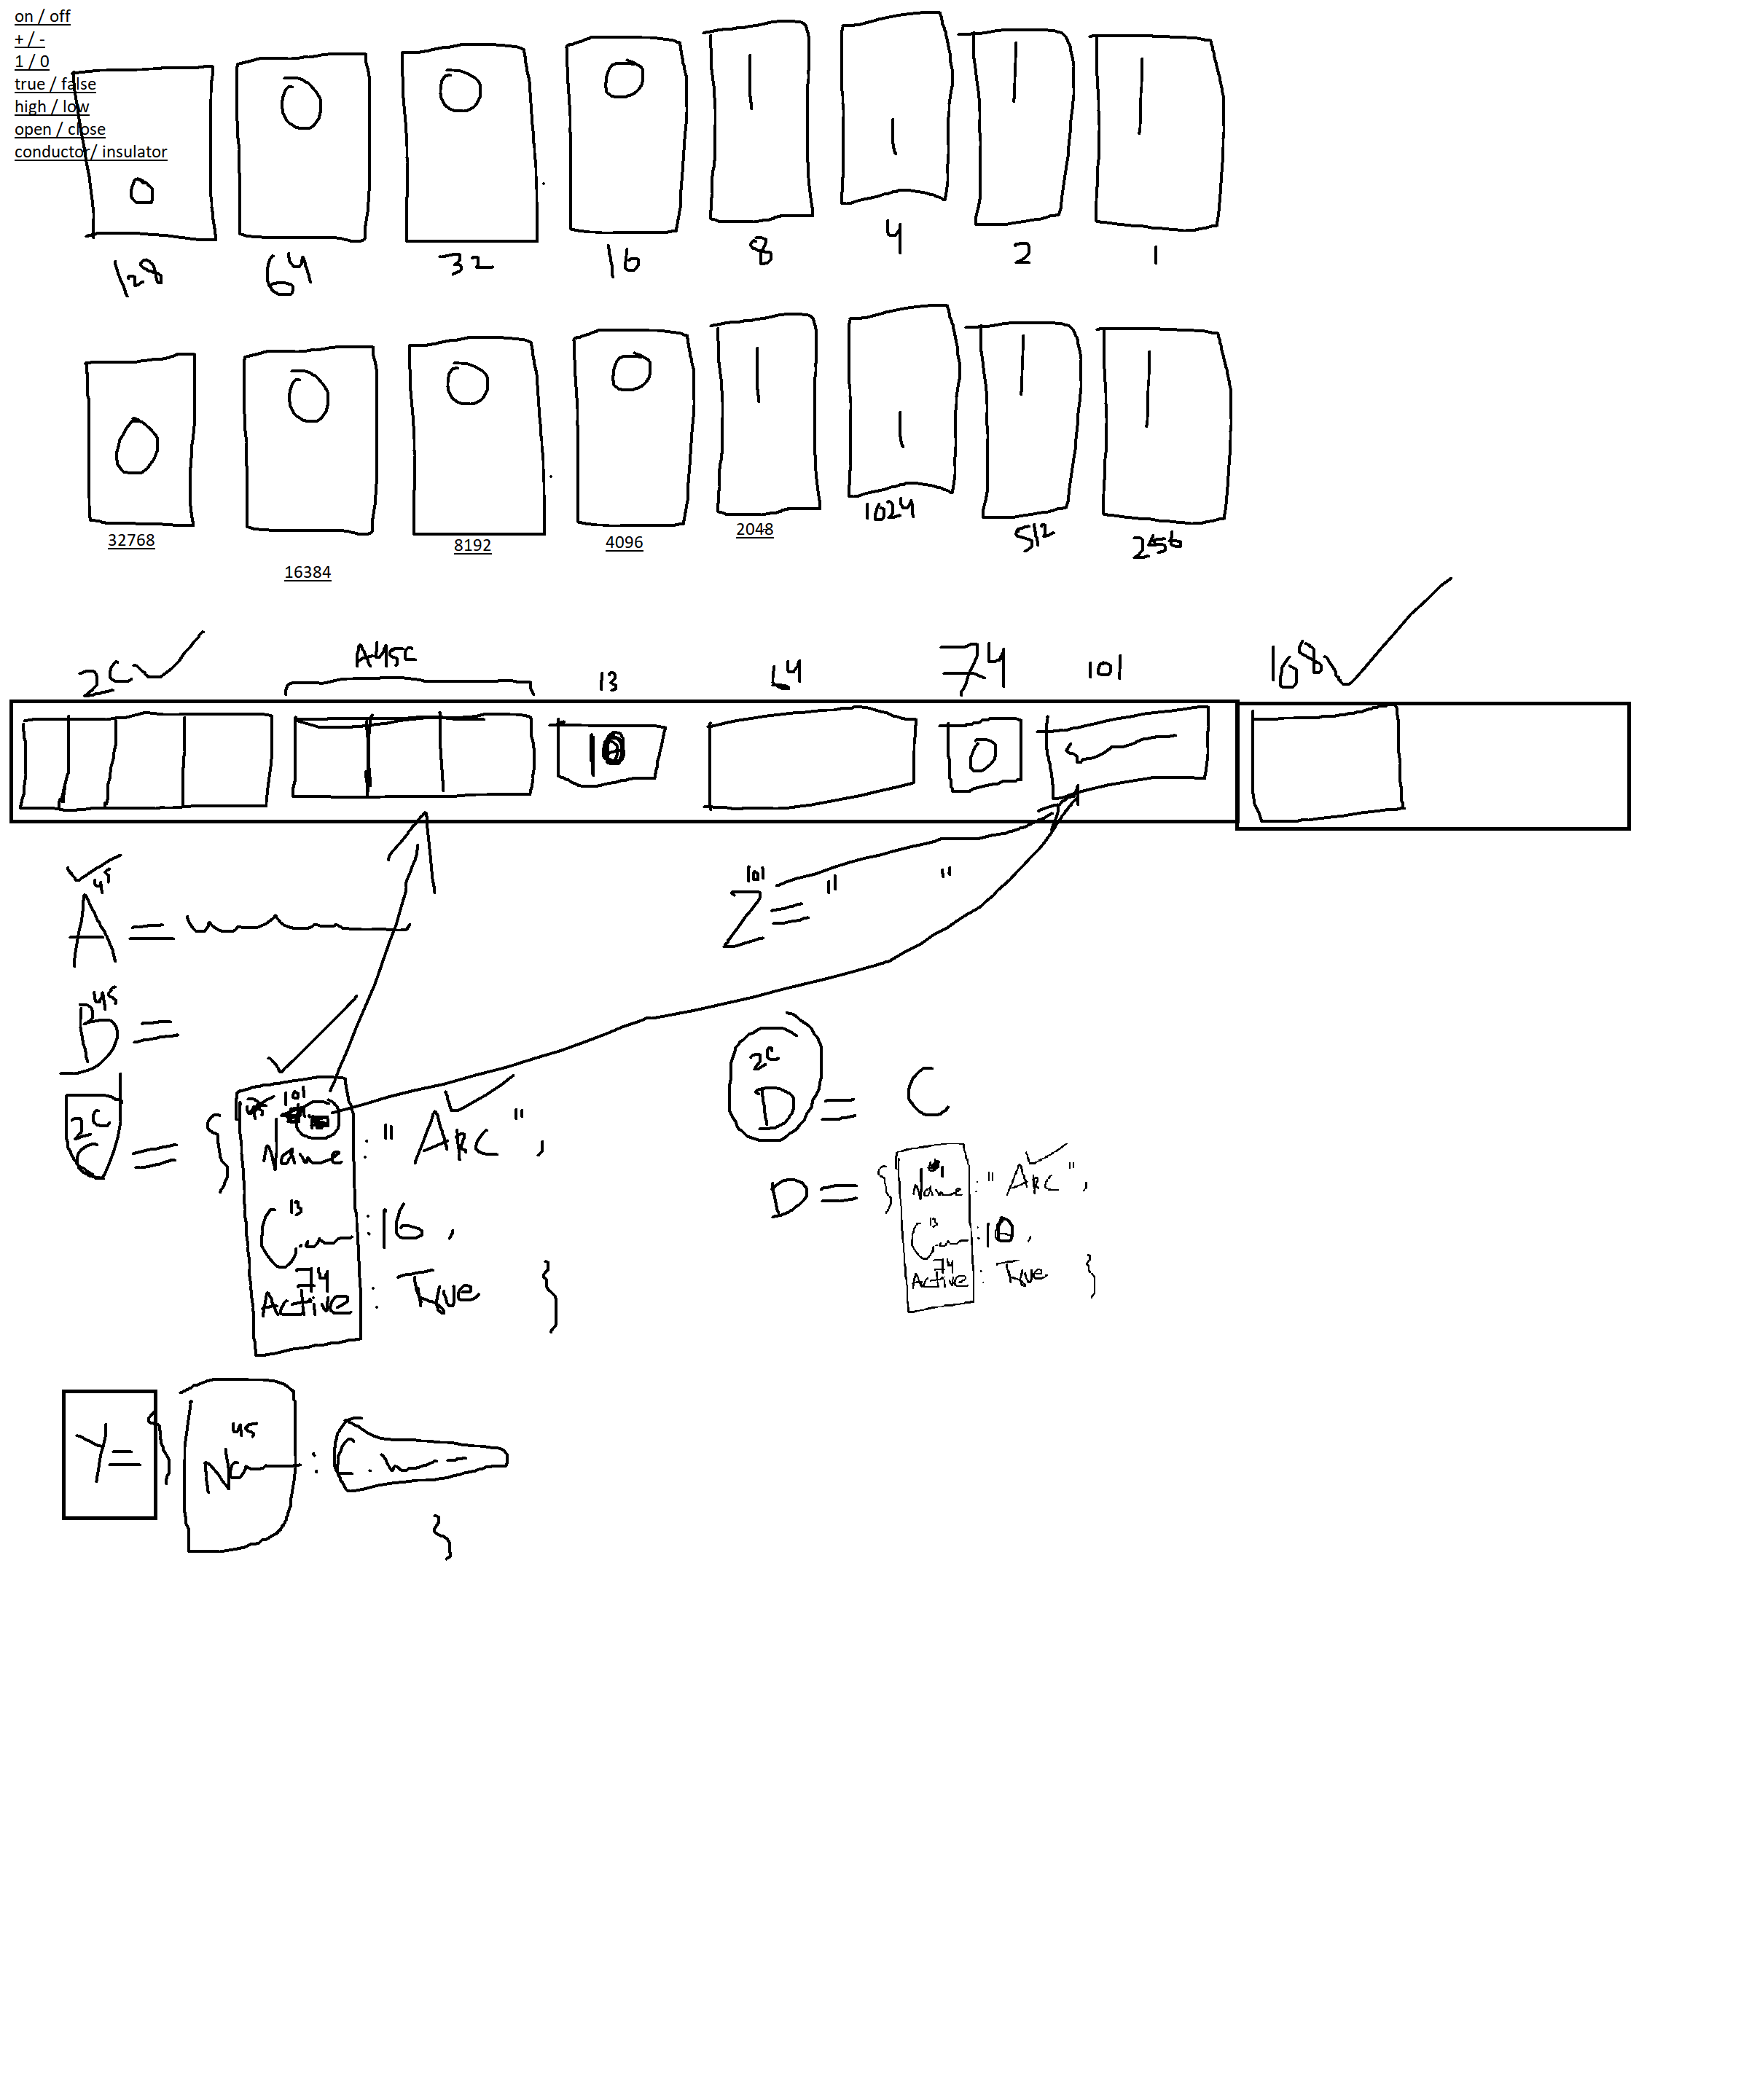 on / off
+ / -
1 / 0
true / false
high / low
open / close
conductor/ insulator
0 0 0 0 1 1 1 1
128 64 32 16 8 4 2 1
0 0 0 0 1 1 1 1
32768 16384 8192 4096 2048 1024 512 256
2C A45C 13 64 74 101 108
10 0
45
A =
101
Z = " "
45
B =
2C
C = {
45 101
Name : " ARC " ,
13
C : 16 ,
74
Active : True }
2C
D = C
D = {
Name : " ARC " ,
13
C : 10 ,
74
Active : True }
Y = {
45
Na :
}